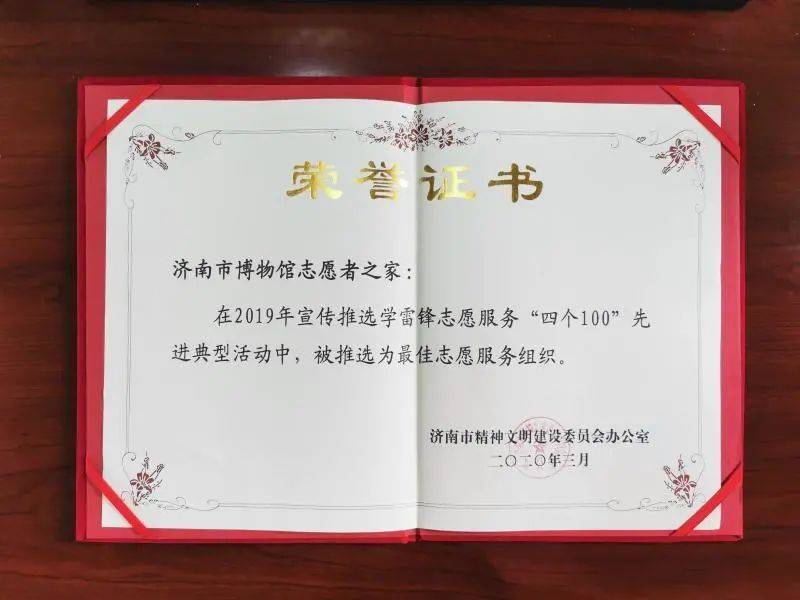 荣誉证书
济南市博物馆志愿者之家：
在2019年宣传推选学雷锋志愿服务“四个100”先
进典型活动中，被推选为最佳志愿服务组织。
济南市精神文明建设委员会办公室
二〇二〇年三月